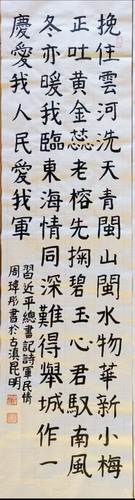 挽住雲河洗天青閩山閩水物華新小梅
正吐黃金蕊老榕先掬碧玉心君馭南風
冬亦暖我臨東海情同深難得舉城作一
慶愛我人民愛我軍
習近平總書記詩軍民情
周璋彤書於古滇昆明